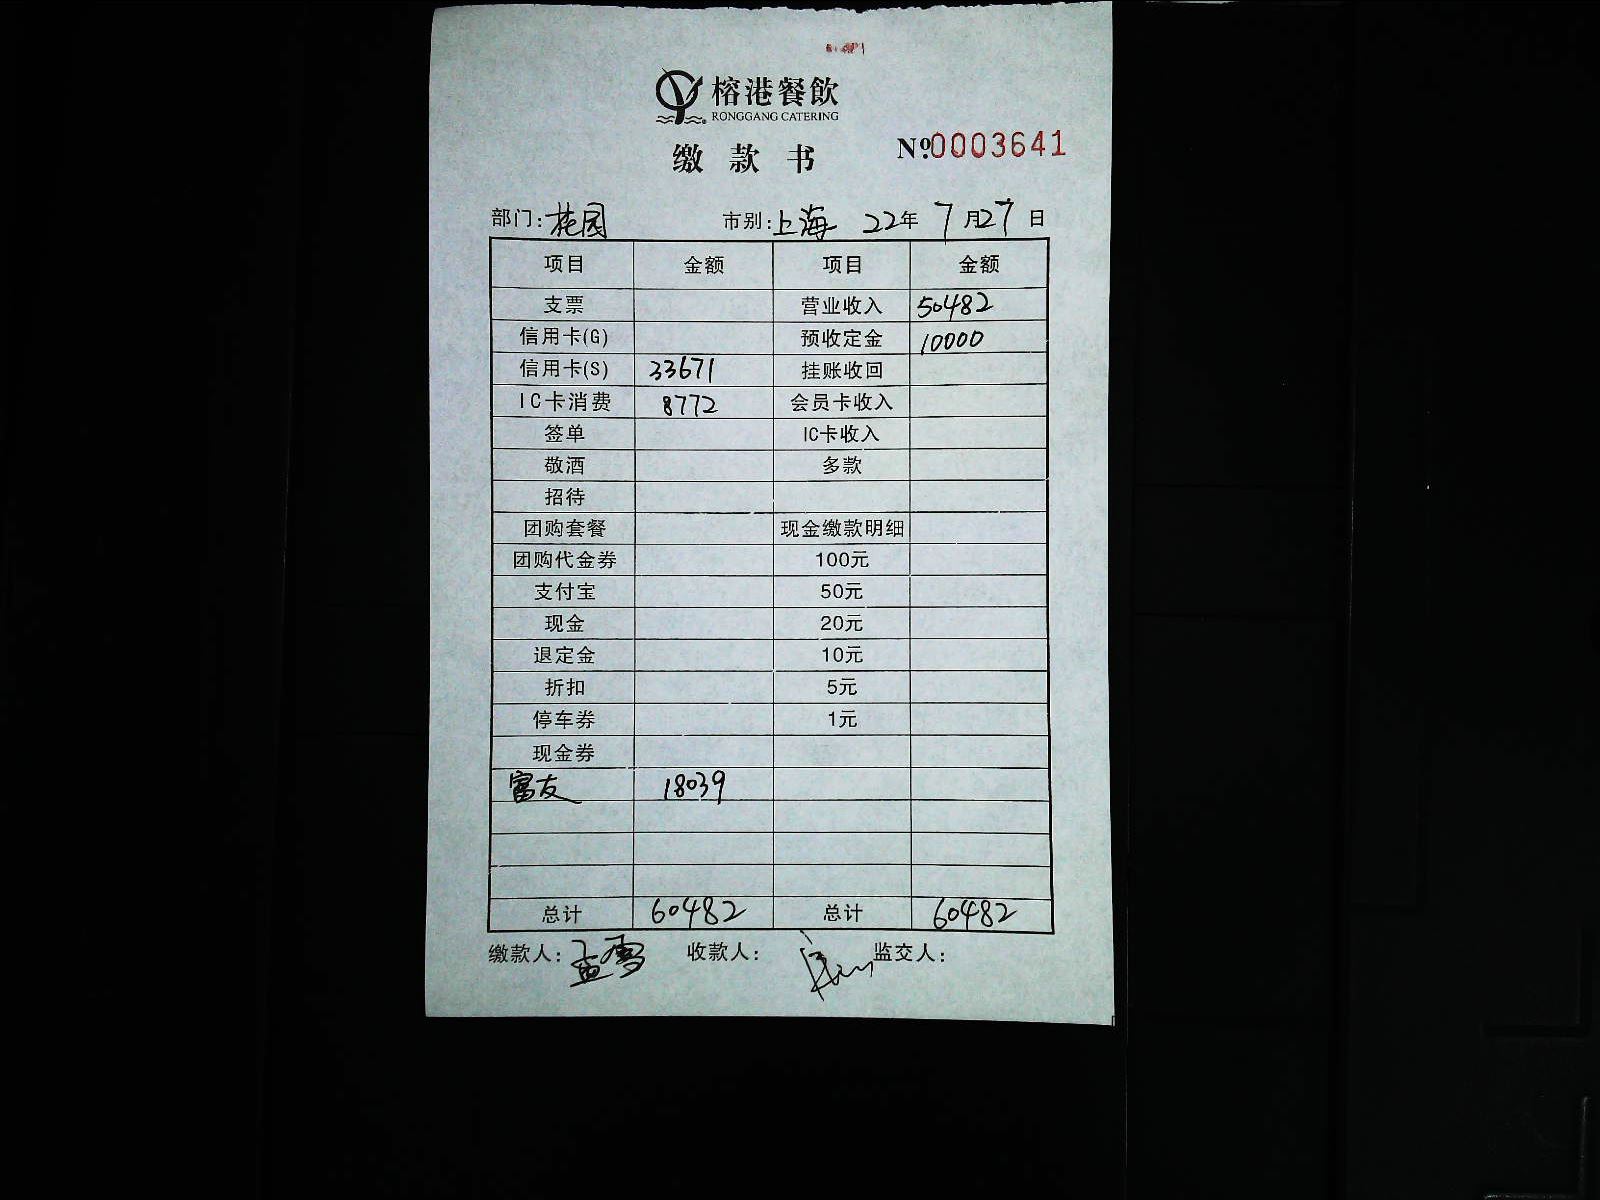 榕港餐飲
RONGGANG CATERING
缴款书 №0003641
部门:花园 市别:上海 22年7月27日
项目 金额 项目 金额
支票 营业收入 50482
信用卡(G) 预收定金 10000
信用卡(S) 33671 挂账收回
IC卡消费 8772 会员卡收入
签单 IC卡收入
敬酒 多款
招待
团购套餐 现金缴款明细
团购代金券 100元
支付宝 50元
现金 20元
退定金 10元
折扣 5元
停车券 1元
现金券
富友 18039
总计 60482 总计 60482
缴款人:孟雪 收款人: 监交人: